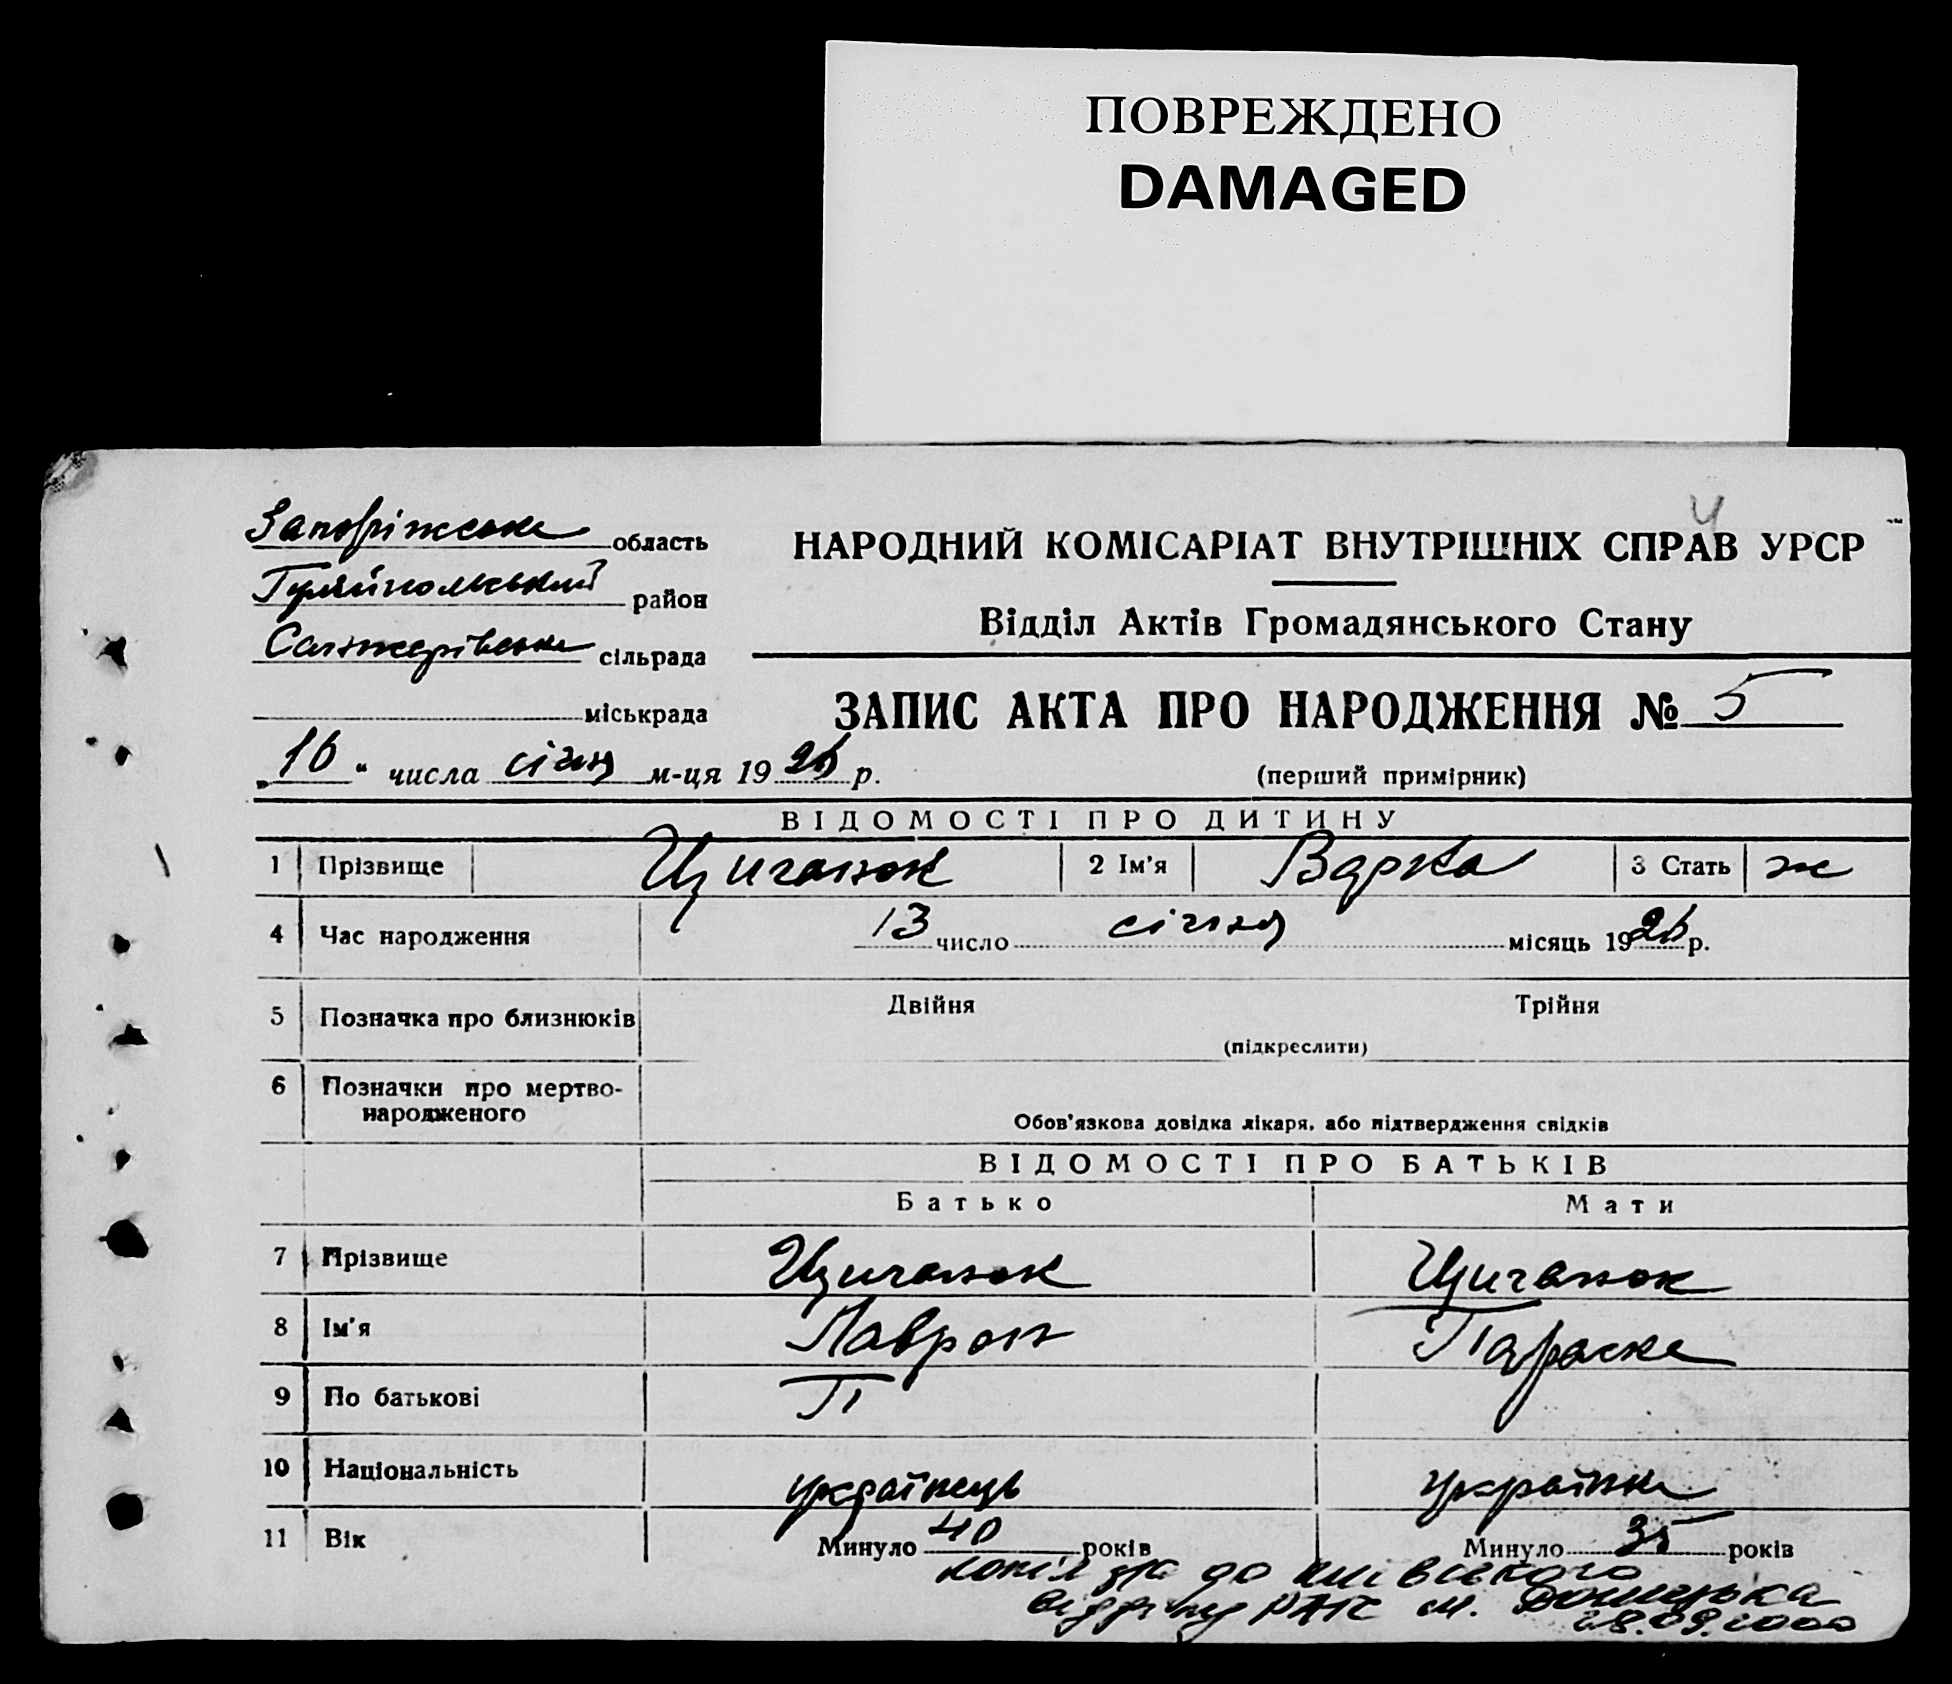 ПОВРЕЖДЕНО
DAMAGED
4
Запоріжська область
Гуляйпольський район
Санжарівська сільрада
міськрада
НАРОДНИЙ КОМІСАРІАТ ВНУТРІШНІХ СПРАВ УРСР
Відділ Актів Громадянського Стану
ЗАПИС АКТА ПРО НАРОДЖЕННЯ № 5
(перший примірник)
„16“ числа січня м-ця 1926 р.
ВІДОМОСТІ ПРО ДИТИНУ
1 Прізвище Циганок 2 Ім'я Варка 3 Стать ж
4 Час народження 13 число січня місяць 1926 р.
5 Позначка про близнюків Двійня Трійня
(підкреслити)
6 Позначки про мертво-
народженого
Обов'язкова довідка лікаря, або підтвердження свідків
ВІДОМОСТІ ПРО БАТЬКІВ
Батько Мати
7 Прізвище Циганок Циганок
8 Ім'я Лаврон Параска
9 По батькові П
10 Національність українець українка
11 Вік Минуло 40 років Минуло 35 років
копія до Київського
відділу РАГС м. Донецька
28.09.2000